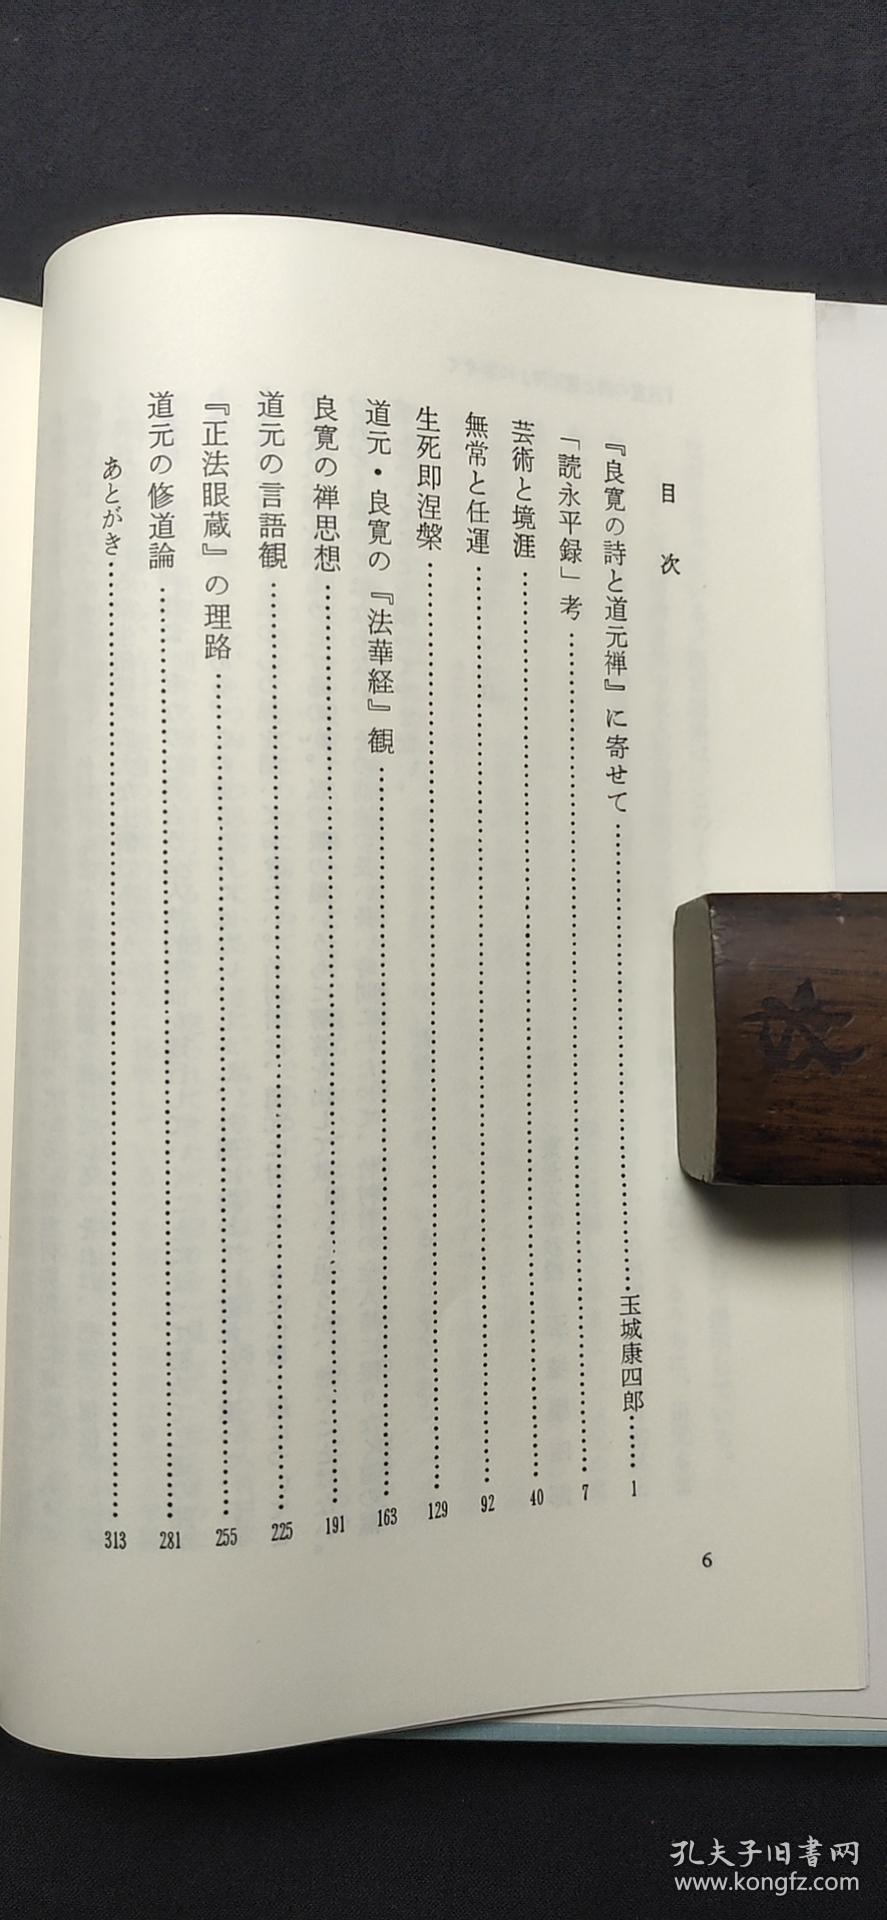 目次
『良寛の詩と道元禅』に寄せて……玉城康四郎……1
「読永平録」考……7
芸術と境涯……40
無常と任運……92
生死即涅槃……129
道元・良寛の『法華経』観……163
良寛の禅思想……191
道元の言語観……225
『正法眼蔵』の理路……255
道元の修道論……281
あとがき……313
6
孔夫子旧書网
www.kongfz.com